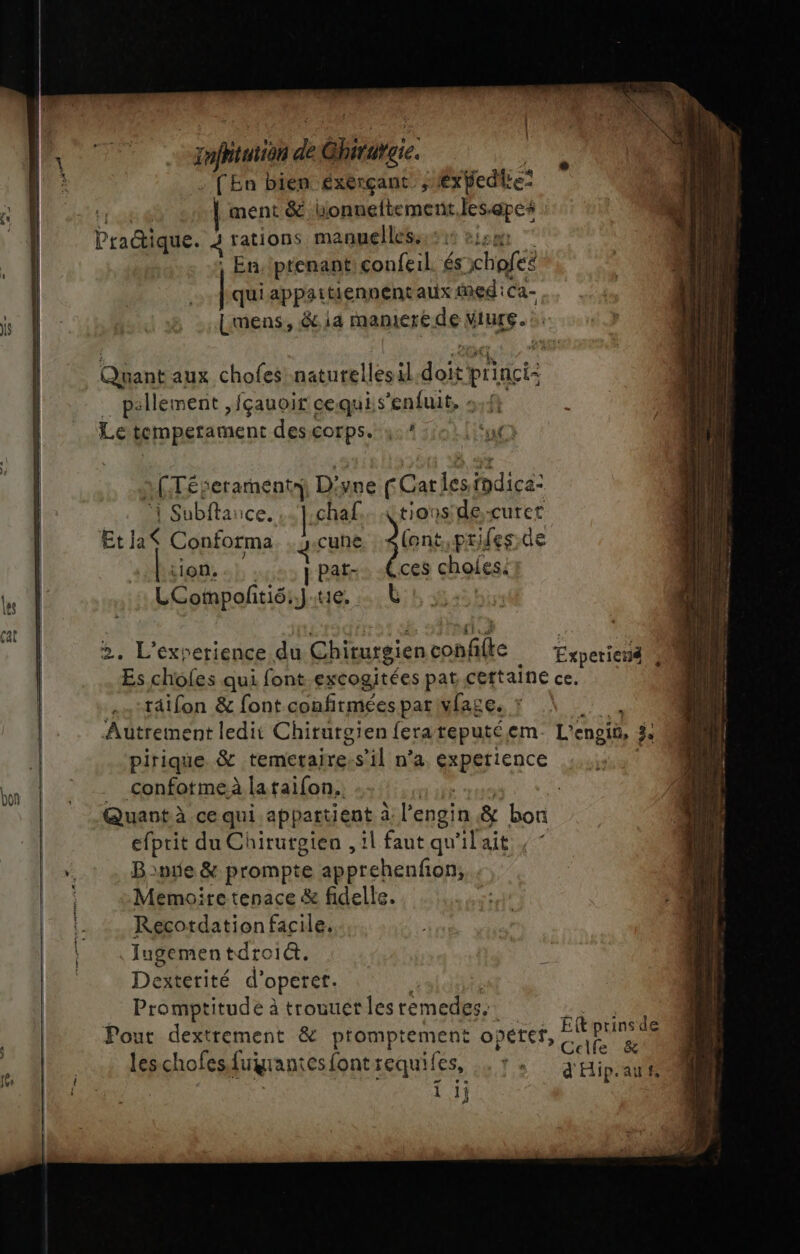 Institution de Chirurgie.
{En bien exerçant, expedite-
ment & honnestement les ope-
Practique. rations manuelles.
En prenant conseil és choses
qui appartiennent aux medica-
mens, & la maniere de viure.
Quant aux choses naturelles il doit princi-
pallement, sçauoir ce qui s'ensuit,
Le temperament des corps.
{Téperament} D'vne {Car les indica-
Substance. chas- tions de curer
Et la Conforma- cune sont prises de
tion. par- ces choses.
Compositió. tie.
2. L'experience du Chirurgien consiste Experien-
Es choses qui sont excogitées par certaine ce.
raison & sont confirmées par vsage.
Autrement ledit Chirurgien sera reputé em- L'engin, 3.
pirique & temeraire s'il n'a experience
conforme à la raison.
Quant à ce qui appartient à l'engin & bon
esprit du Chirurgien, il faut qu'il ait
Bonne & prompte apprehension,
Memoire tenace & fidelle.
Recordation facile.
Iugement droict.
Dexterité d'operer.
Promptitude à trouuer les remedes.
Pour dextrement & promptement operer, Est prins de
Celse &
les choses suiuantes sont requises, d'Hip. aut.
I ij